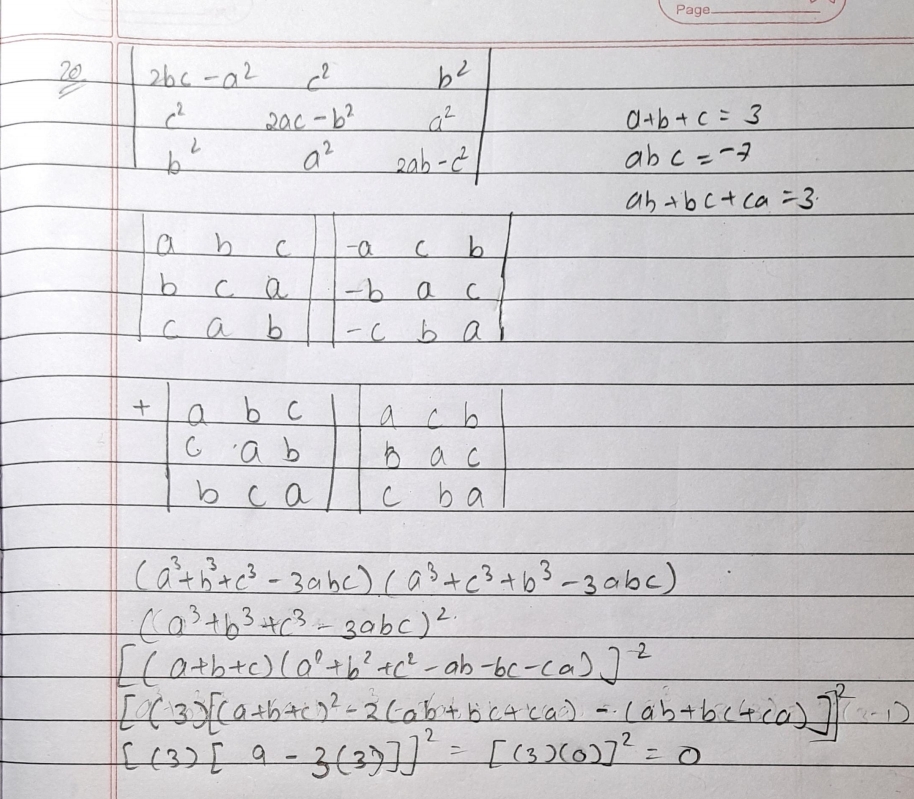 Page
20
2bc - a² c² b²
c² 2ac - b² a² a+b+c = 3
b² a² 2ab - c² abc = -7
ab+bc+ca = 3.
a b c -a c b
b c a -b a c
c a b -c b a
+ a b c a c b
c a b b a c
b c a c b a
(a³+b³+c³ - 3abc) (a³+c³+b³ - 3abc)
(a³+b³+c³ - 3abc)²
[(a+b+c)(a²+b²+c² - ab - bc - ca)]²
[(3)[(a+b+c)² - 2(ab+bc+ca) - (ab+bc+ca)]]²
[(3)[9 - 3(3)]]² = [(3)(0)]² = 0